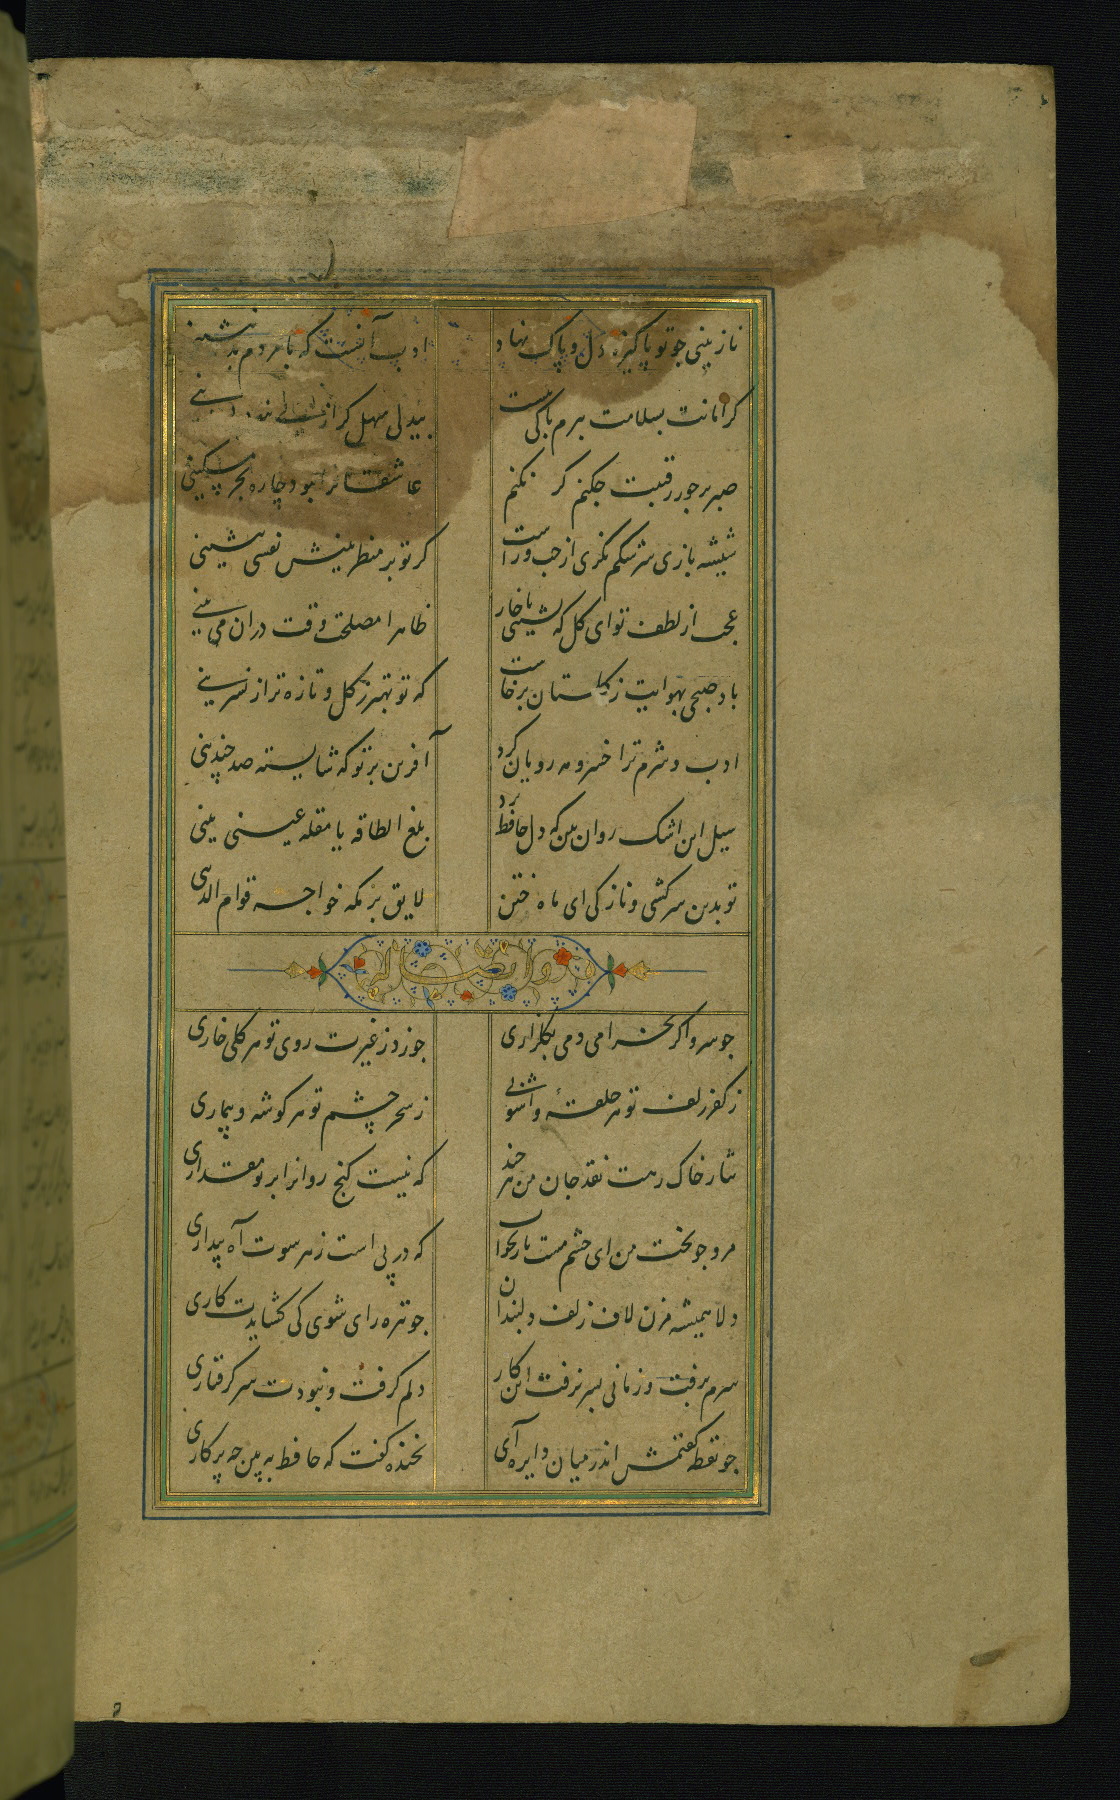 نازنینی جو تو پاکیزه دل و پاک نهاد ادب آنست که با مردم بد ننشینی
گر امانت بسلامت ببرم باکی نیست بیدلی سهل گر از بی نبود دینی
صبر بر جور رقیبت جکنم گر نکنم عاشقانرا نبود چاره بجز مسکینی
شیشه بازی سرشکم نگری از جب و راست گر تو بر منظر بینش نفسی بنشینی
عجب از لطف تو ای کل که نشینی با خار ظاهرا مصلحت وقت در ان می بینی
باد صبحی بهوایت ز کلستان برخاست که تو بهتر ز کل و تازه تر از نسرینی
ادب و شرم ترا خسرو مه رویان کرد آفرین بر تو که شایسته صد چندینی
سیل این اشک روان بین که دل حافظ برد بلغ الطاقه یا مقله عینی بینی
تو بدین سرکشی و نازکی ای ماه ختن لایق بزمکه خواجه قوام الدینی
وله ایضا
جو سرو اکر بخرامی دمی بکلزاری جوزد ز غیرت روی تو هر کلی خاری
ز کفر زلف تو هر حلقهٔ و اشوبی ز سحر چشم تو هر کوشه و بیماری
نثار خاک رهت نقد جان من هر چند که نیست کنج روانرا بر تو مقداری
مرو جو بخت من ای چشم مست یار بخواب که در پی است ز هر سوت آه بیداری
دلا همیشه مزن لاف زلف دلبندان جو تیره رای شوی کی کشایدت کاری
سرم برفت و زمانی بسر نرفت این کار دلم کرفت و نبودت سر کرفتاری
جو نقطه کفتمش اندر میان دایره آی بخنده کفت که حافظ به بین جه پرکاری